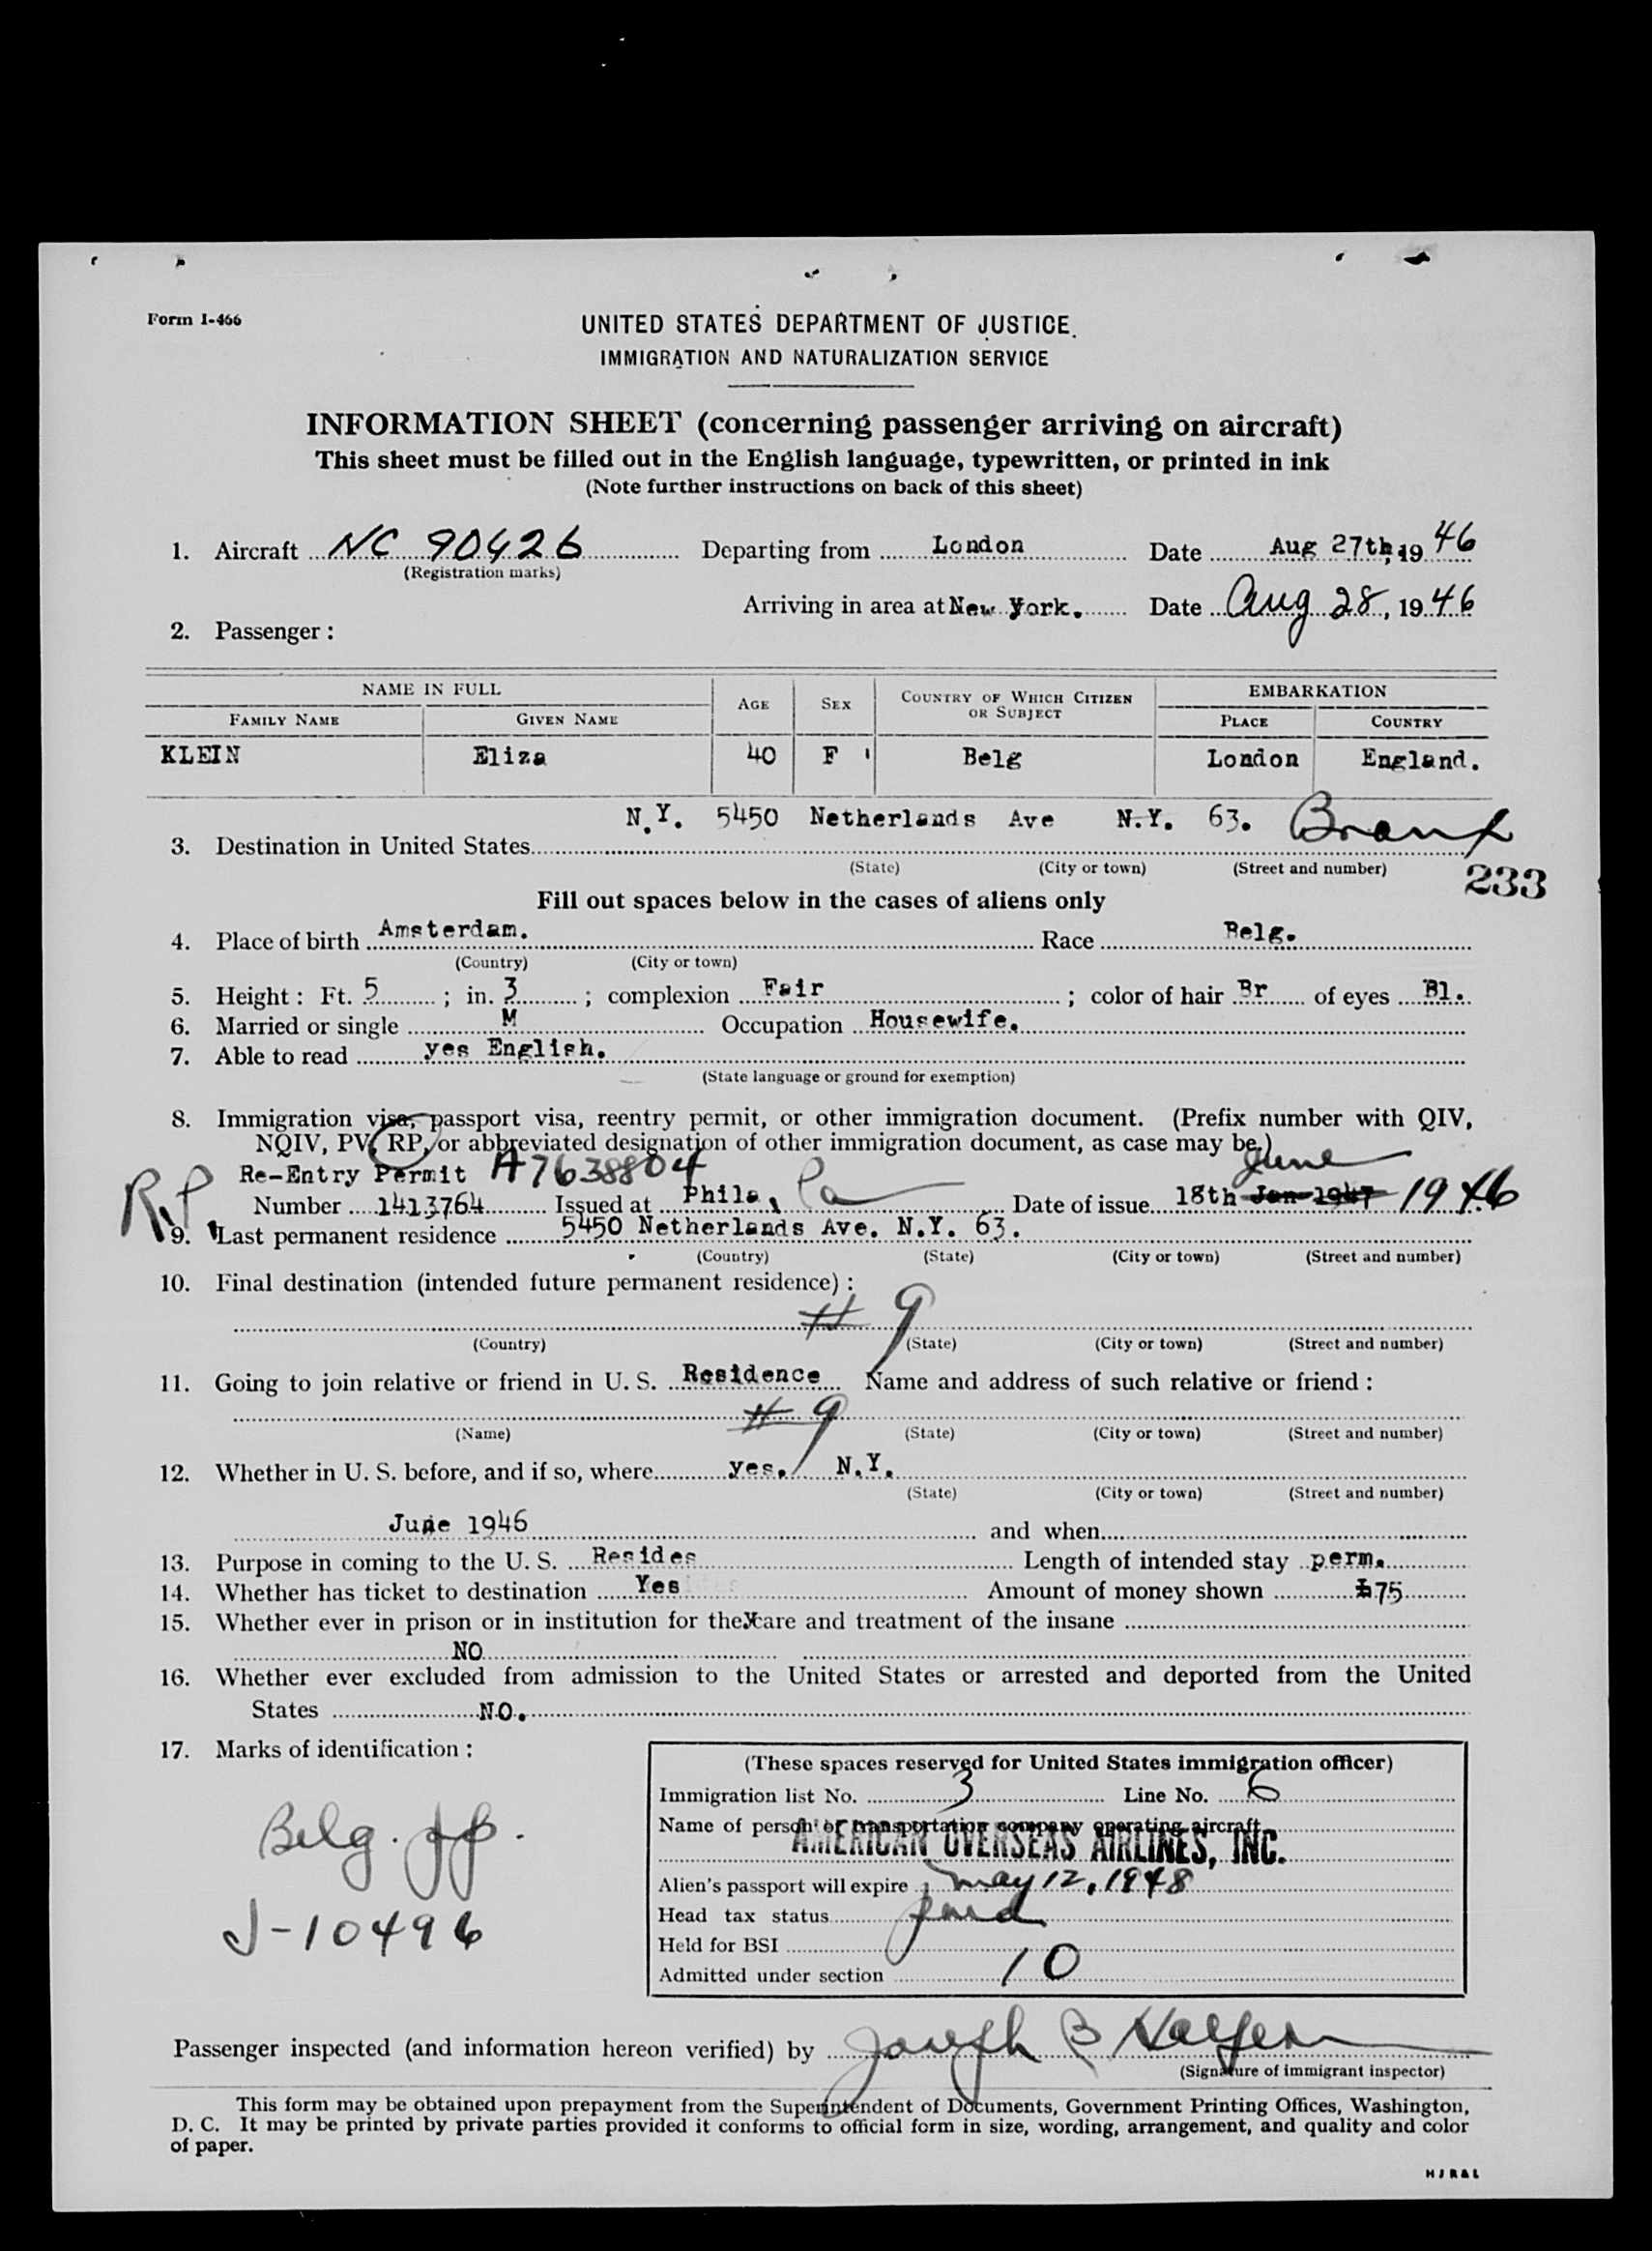 Form I-466
UNITED STATES DEPARTMENT OF JUSTICE
IMMIGRATION AND NATURALIZATION SERVICE
INFORMATION SHEET (concerning passenger arriving on aircraft)
This sheet must be filled out in the English language, typewritten, or printed in ink
(Note further instructions on back of this sheet)
1. Aircraft NC 90426 Departing from London Date Aug 27th, 19 46
(Registration marks)
Arriving in area at New York. Date Aug 28, 19 46
2. Passenger :
NAME IN FULL AGE SEX COUNTRY OF WHICH CITIZEN OR SUBJECT EMBARKATION
FAMILY NAME GIVEN NAME PLACE COUNTRY
KLEIN Eliza 40 F Belg London England.
N.Y. 5450 Netherlands Ave N.Y. 63. Bronx
3. Destination in United States
(State) (City or town) (Street and number)
233
Fill out spaces below in the cases of aliens only
4. Place of birth Amsterdam. Race Belg.
(Country) (City or town)
5. Height : Ft. 5 ; in. 3 ; complexion Fair ; color of hair Br of eyes Bl.
6. Married or single M Occupation Housewife.
7. Able to read yes English.
(State language or ground for exemption)
8. Immigration visa, passport visa, reentry permit, or other immigration document. (Prefix number with QIV,
NQIV, PV, RP, or abbreviated designation of other immigration document, as case may be.)
Re-Entry Permit A7638804 June
RP Number 1413764 Issued at Phila, Pa Date of issue 18th Jan 1947 1946
9. Last permanent residence 5450 Netherlands Ave. N.Y. 63.
(Country) (State) (City or town) (Street and number)
10. Final destination (intended future permanent residence) :
# 9
(Country) (State) (City or town) (Street and number)
11. Going to join relative or friend in U. S. Residence Name and address of such relative or friend :
# 9
(Name) (State) (City or town) (Street and number)
12. Whether in U. S. before, and if so, where yes. N.Y.
(State) (City or town) (Street and number)
June 1946 and when
13. Purpose in coming to the U. S. Resides Length of intended stay perm.
14. Whether has ticket to destination Yes Amount of money shown £75
15. Whether ever in prison or in institution for the care and treatment of the insane
NO
16. Whether ever excluded from admission to the United States or arrested and deported from the United
States NO.
17. Marks of identification :
Belg. pp.
J-10496
(These spaces reserved for United States immigration officer)
Immigration list No. 3 Line No. 6
Name of person or transportation company operating aircraft
AMERICAN OVERSEAS AIRLINES, INC.
Alien's passport will expire May 12, 1948
Head tax status paid
Held for BSI
Admitted under section 10
Passenger inspected (and information hereon verified) by Joseph B Halpern
(Signature of immigrant inspector)
This form may be obtained upon prepayment from the Superintendent of Documents, Government Printing Offices, Washington,
D. C. It may be printed by private parties provided it conforms to official form in size, wording, arrangement, and quality and color
of paper.
HJR&L